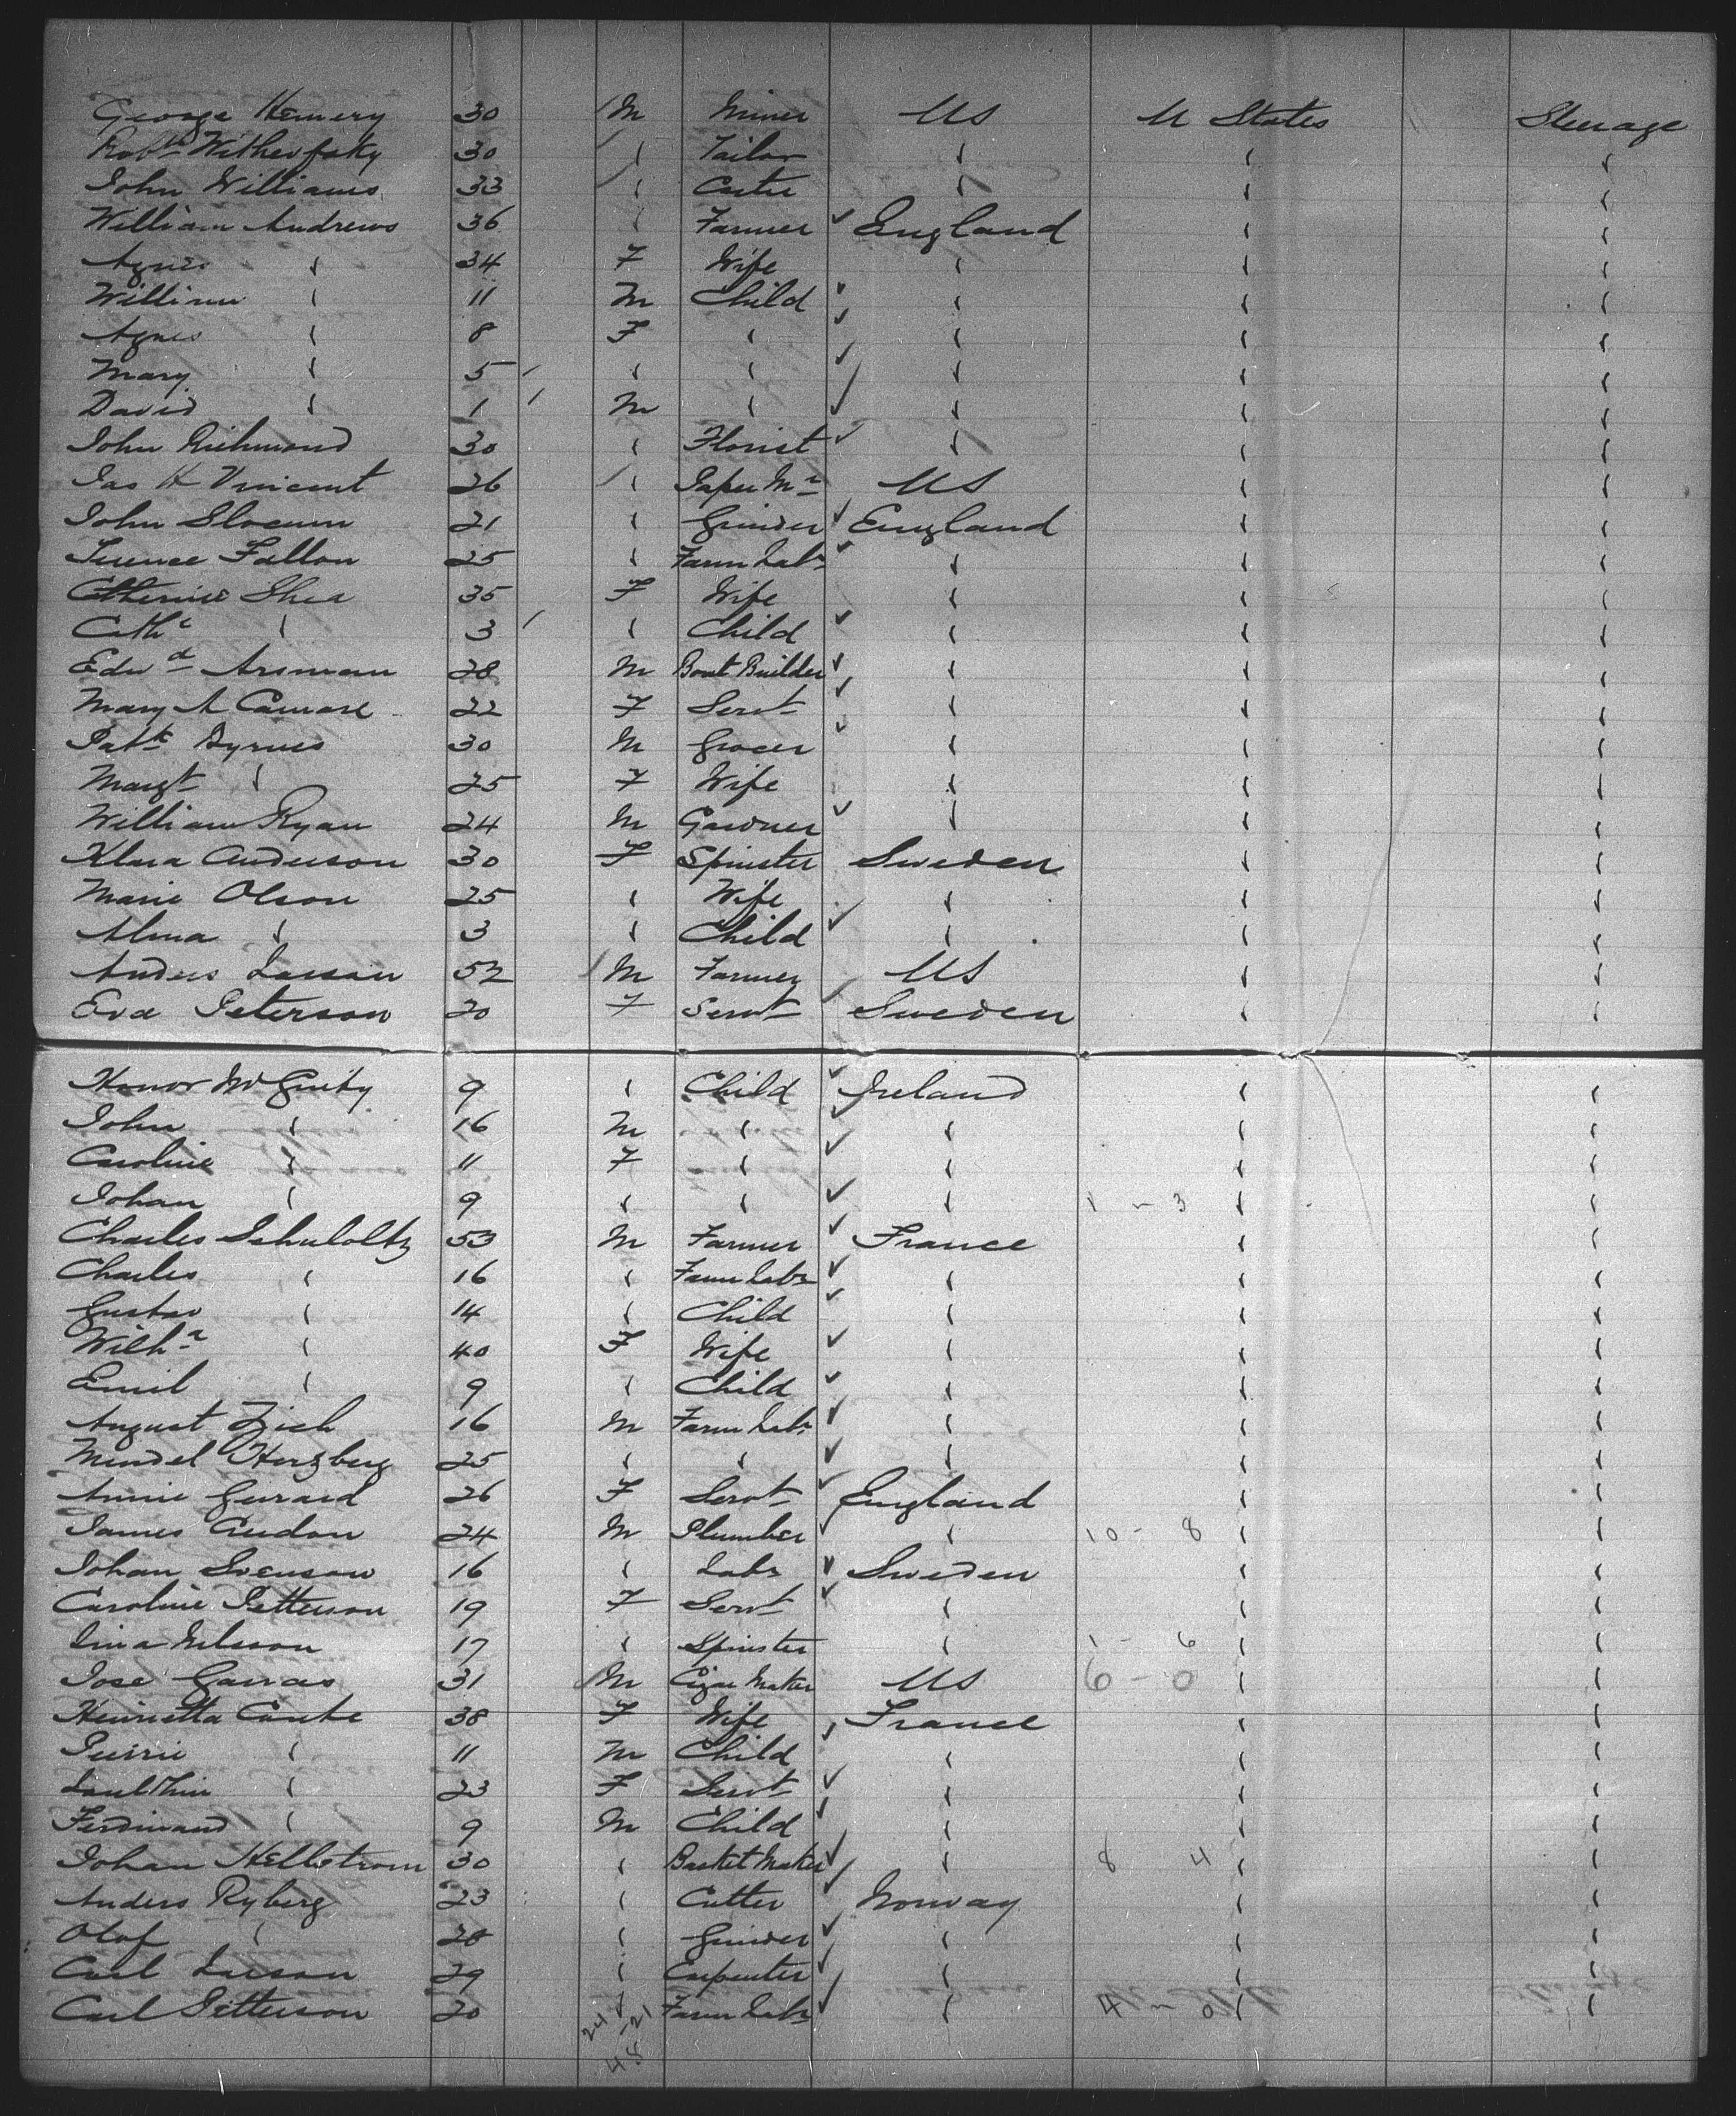 George Hemery 30 M Miner US U States Steerage
Robt 30 " Tailor " " "
John Williams 33 " Carter " " "
William Andrews 36 " Farmer England " "
Agnes " 34 F Wife " " "
William " 11 M Child " " "
Agnes " 8 F " " " "
Mary " 5 " " " " "
David " 1 M " " " "
John Richmond 30 " Florist " " "
Jas H Vincent 26 " Paper Mr US " "
John Slocum 21 " Grinder England " "
Terence Fallon 25 " Farm Labr " " "
Catherine Shea 35 F Wife " " "
Cathe " 3 " Child " " "
Edwd Arsman 28 M Boat Builder " " "
Mary A 22 F Servt " " "
Patk Byrnes 30 M Grocer " " "
Margt " 25 F Wife " " "
William Ryan 24 M Gardner " " "
Klara Anderson 30 F Spinster Sweden " "
Marie Olson 25 " Wife " " "
Alma " 3 " Child " " "
Anders Larsson 52 M Farmer US " "
Eva Peterson 20 F Servt Sweden " "
Honor McGinty 9 " Child Ireland " "
John " 16 M " " " "
Caroline " 11 F " " " "
Johan " 9 " " " 1 - 3 " "
Charles Schuloltz 53 M Farmer France " "
Charles " 16 " Farm Labr " " "
Gustav " 14 " Child " " "
Wilha " 40 F Wife " " "
Emil " 9 " Child " " "
August Zich 16 M Farm Labr " " "
Mendel Herzberg 25 " " " " "
Annie Gerrard 26 F Servt England " "
James 24 M Plumber " 10 - 8 " "
Johan Svenson 16 " Labr Sweden " "
Caroline Petterson 19 F Servt " " "
Lina Nilsson 17 " Spinster " 1 - 6 " "
Jose Garcas 31 M Cigar Maker US 6 - 0 " "
Henrietta 38 F Wife France " "
Pierrie " 11 M Child " " "
" 23 F Servt " " "
Ferdinand " 9 M Child " " "
Johan Hellstrom 30 " Basket Maker " 8 4 " "
Anders Ryberg 23 " Cutter Norway " "
Olof " 28 " Grinder " " "
Carl Larson 29 " Carpenter " " "
Carl Petterson 20 " Farm Labr " 4 - 0 " "
24 - 21
48